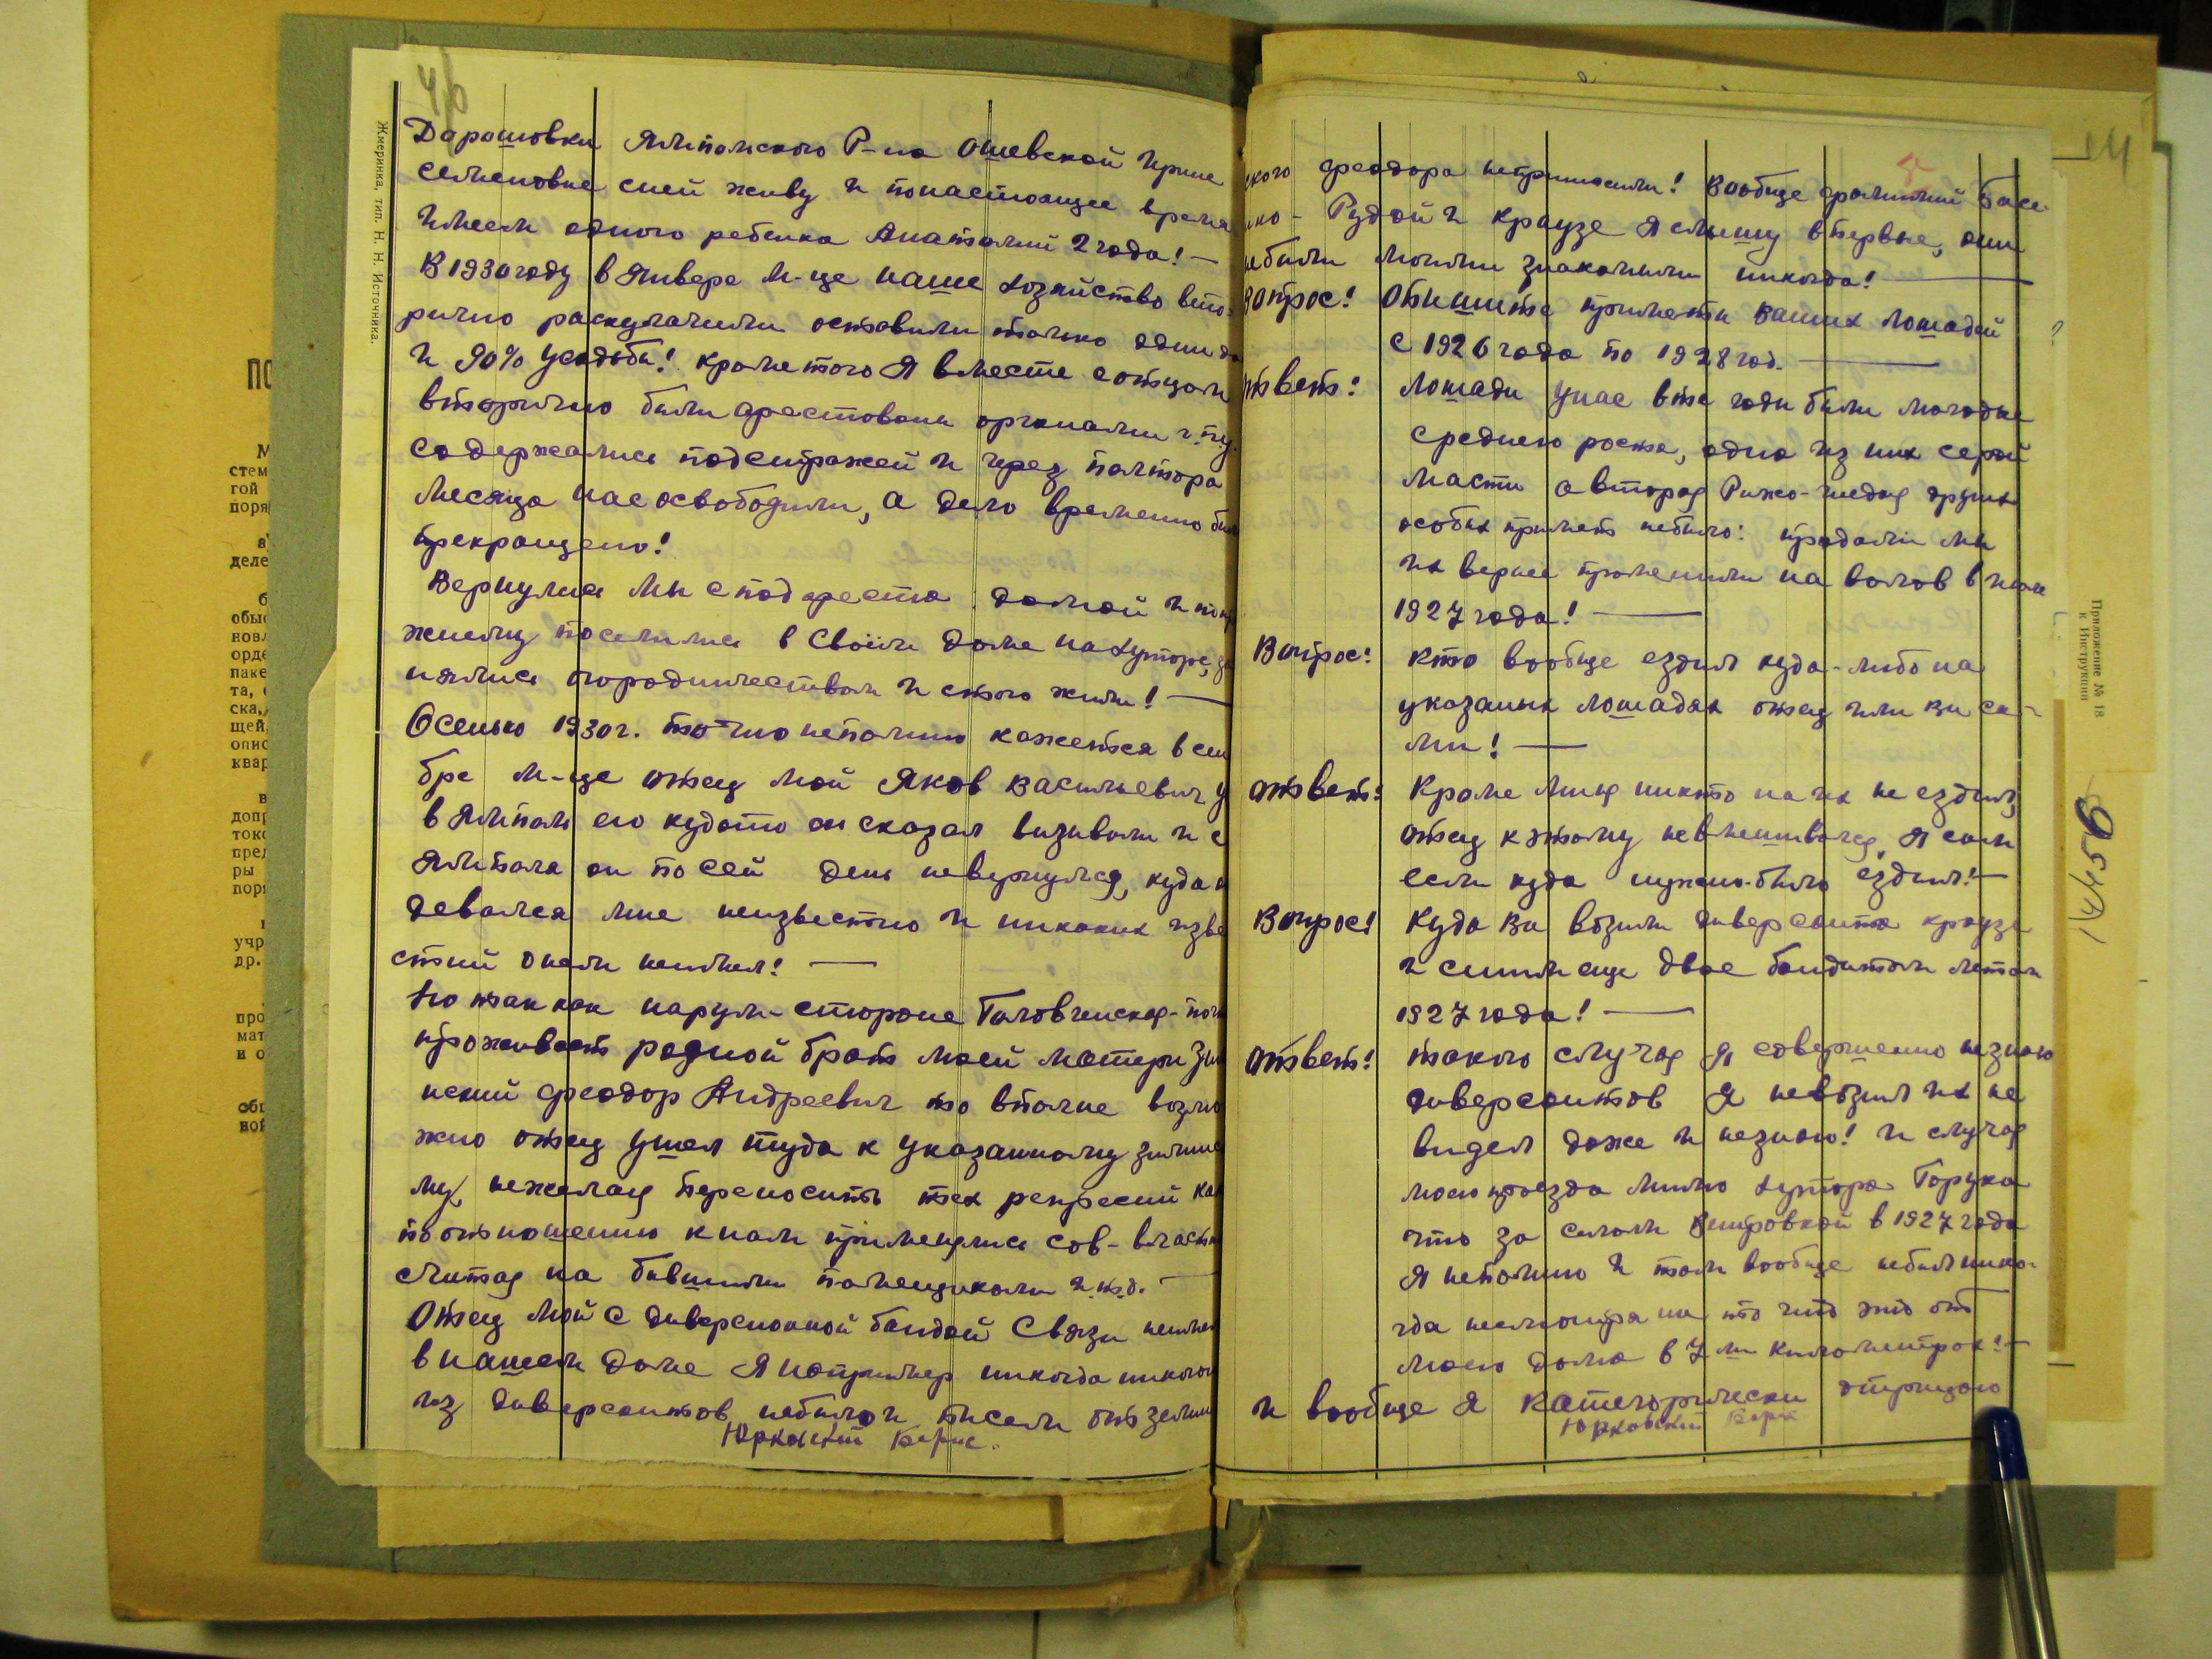 Жмеринка, тип. Н. Н. Источника.
Дорошовки Ямпольского Р-на Ошевской Ирине
Семеновне сней живу и понастоящее время
имеем одного ребенка Анатолий 2 года! —
В 1930 году в Январе м-це наше хозяйство вто-
рично раскулачили оставили только один до
и 90% Усадьбы! кроме того Я вместе сотцом
вторично были арестованы органами г.п.у.
содержались подстражей и через полтора
месяца нас освободили, а дело временно бы
прекращено!
Вернулись мы с под ареста домой и по
жнему поселились в Своём доме на хуторе, за
нялись огородничеством и стого жили! —
Осенью 1930 г. точно непомню кажется в сен
бре м-це отец мой Яков Васильевич у
в Ямполь его кудато он сказал визивали и с
Ямполя он по сей день невернулся, куда
девался мне неизвестно и никаких изве
стий онем неимел! —
Но так как нарум-стороне
проживает родной брат моей матери Зил
нский Феодор Андреевич то вполне возмо
жно отец ушел туда к указанному Зилинс
му, нежелая переносить тех репресий ка
поотношению кнам применялись сов-власт
считая на бывшими помещиками и.т.д. —
Отец мой с диверсионной бандой Связи неимел
в нашем доме Я например никогда никого
из диверсантов небыло и писем от Зелин
Юрковский Борис.
14
ского Феодора неприносили! Вообще фамилий Басе
нко-Рудой и Краузе Я слышу впервые, они
небыли моими знакомыми никогда! —
Вопрос! Опишите приметы Ваших лошадей
с 1926 года по 1928 год. —
ответ! Лошади унас вте годы были молодые
среднего роста, одна из них серой
масти авторая Рыжо-гнедая других
особых примет небыло: продали мы
их вернее променяли на волов в июле
1927 года! —
Вопрос! Кто вообще ездил куда-либо на
указаных лошадях отец или Ви са-
ми! —
ответ! Кроме миня никто на их не ездил,
отец кэтому невмешивался, Я сам
если куда нужно-было ездил! —
Вопрос! Куда Ви возили диверсанта краузе
и сним еще двое бандитами летом
1927 года! —
ответ! такого случая Я совершенно незнаю
диверсантов Я невозил их не
видел даже и незнаю! и случая
моего проезда мимо хутора Горука
что за селом Витровкой в 1927 года
Я непомню и там вообще небыл нико-
гда несмотря на то что это от
моего дома в 7 ми километрах! —
и вообще Я категорически отрицаю
Юрковский Борис
Приложение № 18
к Инструкции